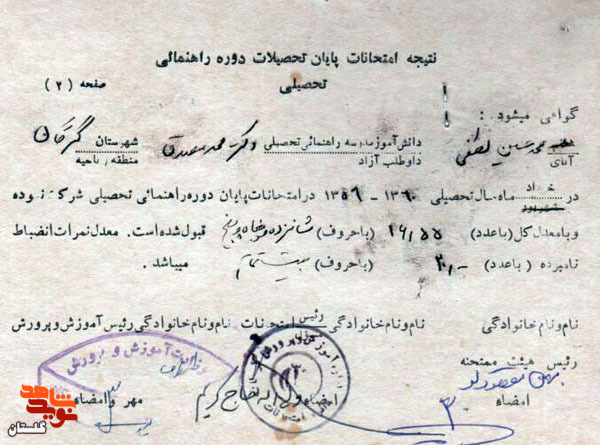 نتیجه امتحانات پایان تحصیلات دوره راهنمائی
تحصیلی
صفحه ( ۲ )
گواهی میشود :
آقای محمدحسین لطفی دانش‌آموز مدرسه راهنمائی تحصیلی دکتر محمد مصدق شهرستان گرگان
داوطلب آزاد منطقه , ناحیه
در خرداد ماه سال تحصیلی ۱۳۶۰ - ۱۳۵۹ در امتحانات پایان دوره راهنمائی تحصیلی شرکت نموده
و با معدل کل (باعدد) ۱۶/۵۵ (باحروف) شانزده و پنجاه و پنج قبول شده است . معدل نمرات انضباط
نامبرده ( باعدد ) ۲۰/- (باحروف) بیست تمام میباشد .
نام و نام خانوادگی نام و نام خانوادگی رئیس امتحانات نام و نام خانوادگی رئیس آموزش و پرورش
رئیس هیئت ممتحنه
امضاء امضاء مهر و امضاء
آموزش و پرورش
نوید شاهد
گلستان